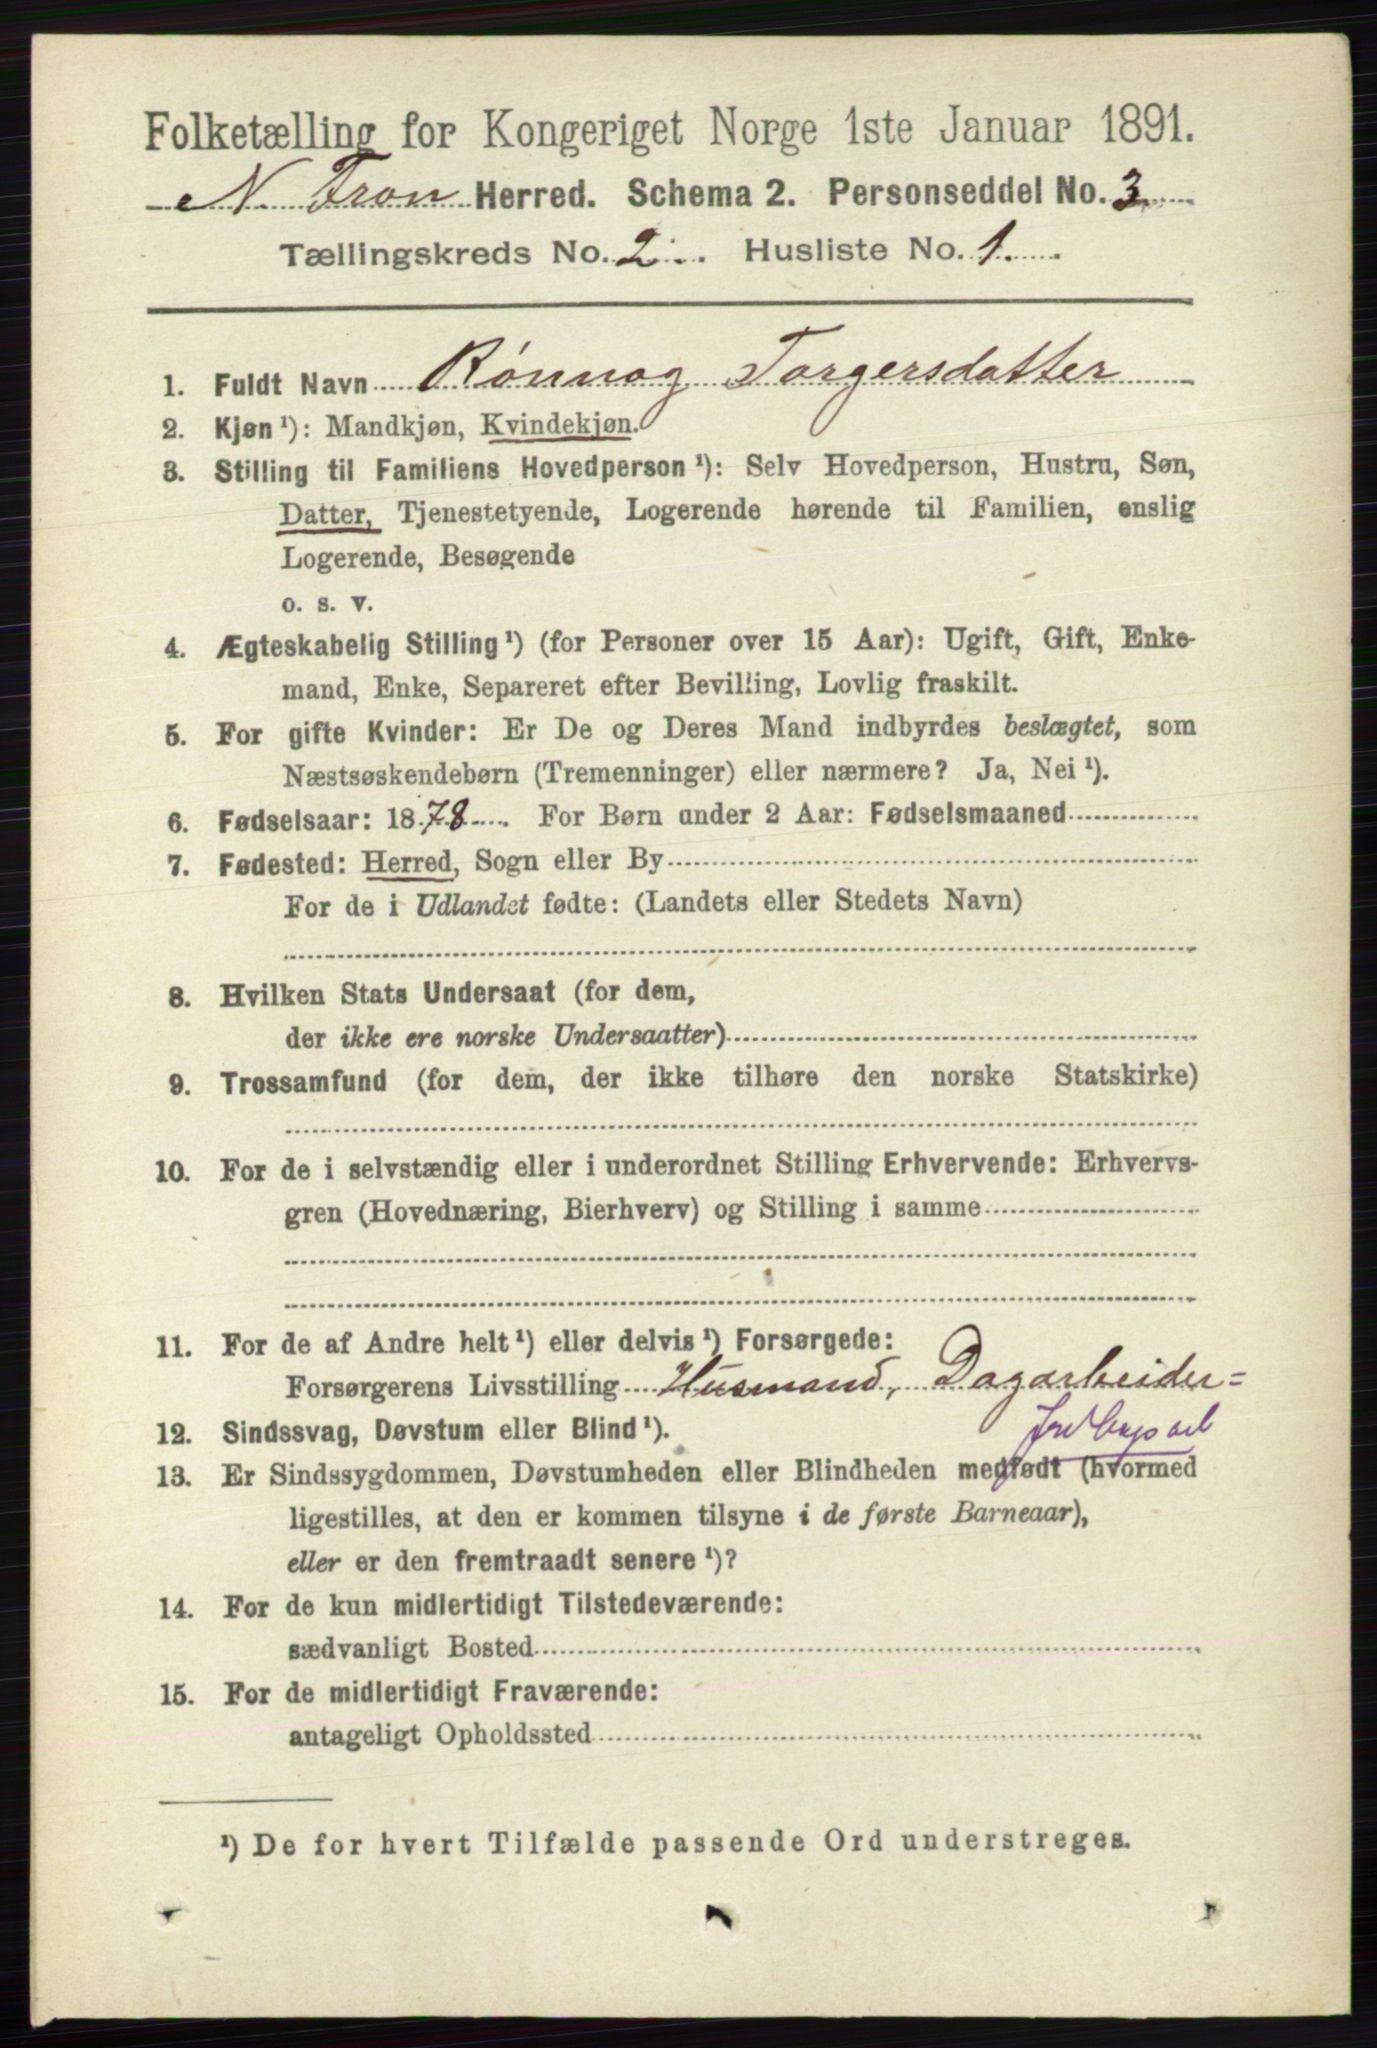 Folketælling for Kongeriget Norge 1ste Januar 1891.
N. Fron Herred. Schema 2. Personseddel No. 3
Tællingskreds No. 2. Husliste No. 1.
1. Fuldt Navn Rónnog Torgersdatter
2. Kjøn¹): Mandkjøn, Kvindekjøn.
3. Stilling til Familiens Hovedperson¹): Selv Hovedperson, Hustru, Søn,
Datter, Tjenestetyende, Logerende hørende til Familien, enslig
Logerende, Besøgende
o. s. v.
4. Ægteskabelig Stilling¹) (for Personer over 15 Aar): Ugift, Gift, Enke-
mand, Enke, Separeret efter Bevilling, Lovlig fraskilt.
5. For gifte Kvinder: Er De og Deres Mand indbyrdes beslægtet, som
Næstsøskendebørn (Tremenninger) eller nærmere? Ja, Nei¹).
6. Fødselsaar: 1878. For Børn under 2 Aar: Fødselsmaaned
7. Fødested: Herred, Sogn eller By
For de i Udlandet fødte: (Landets eller Stedets Navn)
8. Hvilken Stats Undersaat (for dem,
der ikke ere norske Undersaatter)
9. Trossamfund (for dem, der ikke tilhøre den norske Statskirke)
10. For de i selvstændig eller i underordnet Stilling Erhvervende: Erhvervs-
gren (Hovednæring, Bierhverv) og Stilling i samme
11. For de af Andre helt¹) eller delvis¹) Forsørgede:
Forsørgerens Livsstilling Husmand, Dagarbeider=
12. Sindssvag, Døvstum eller Blind¹).
13. Er Sindssygdommen, Døvstumheden eller Blindheden medfødt (hvormed
ligestilles, at den er kommen tilsyne i de første Barneaar),
eller er den fremtraadt senere¹)?
14. For de kun midlertidigt Tilstedeværende:
sædvanligt Bosted
15. For de midlertidigt Fraværende:
antageligt Opholdssted
¹) De for hvert Tilfælde passende Ord understreges.